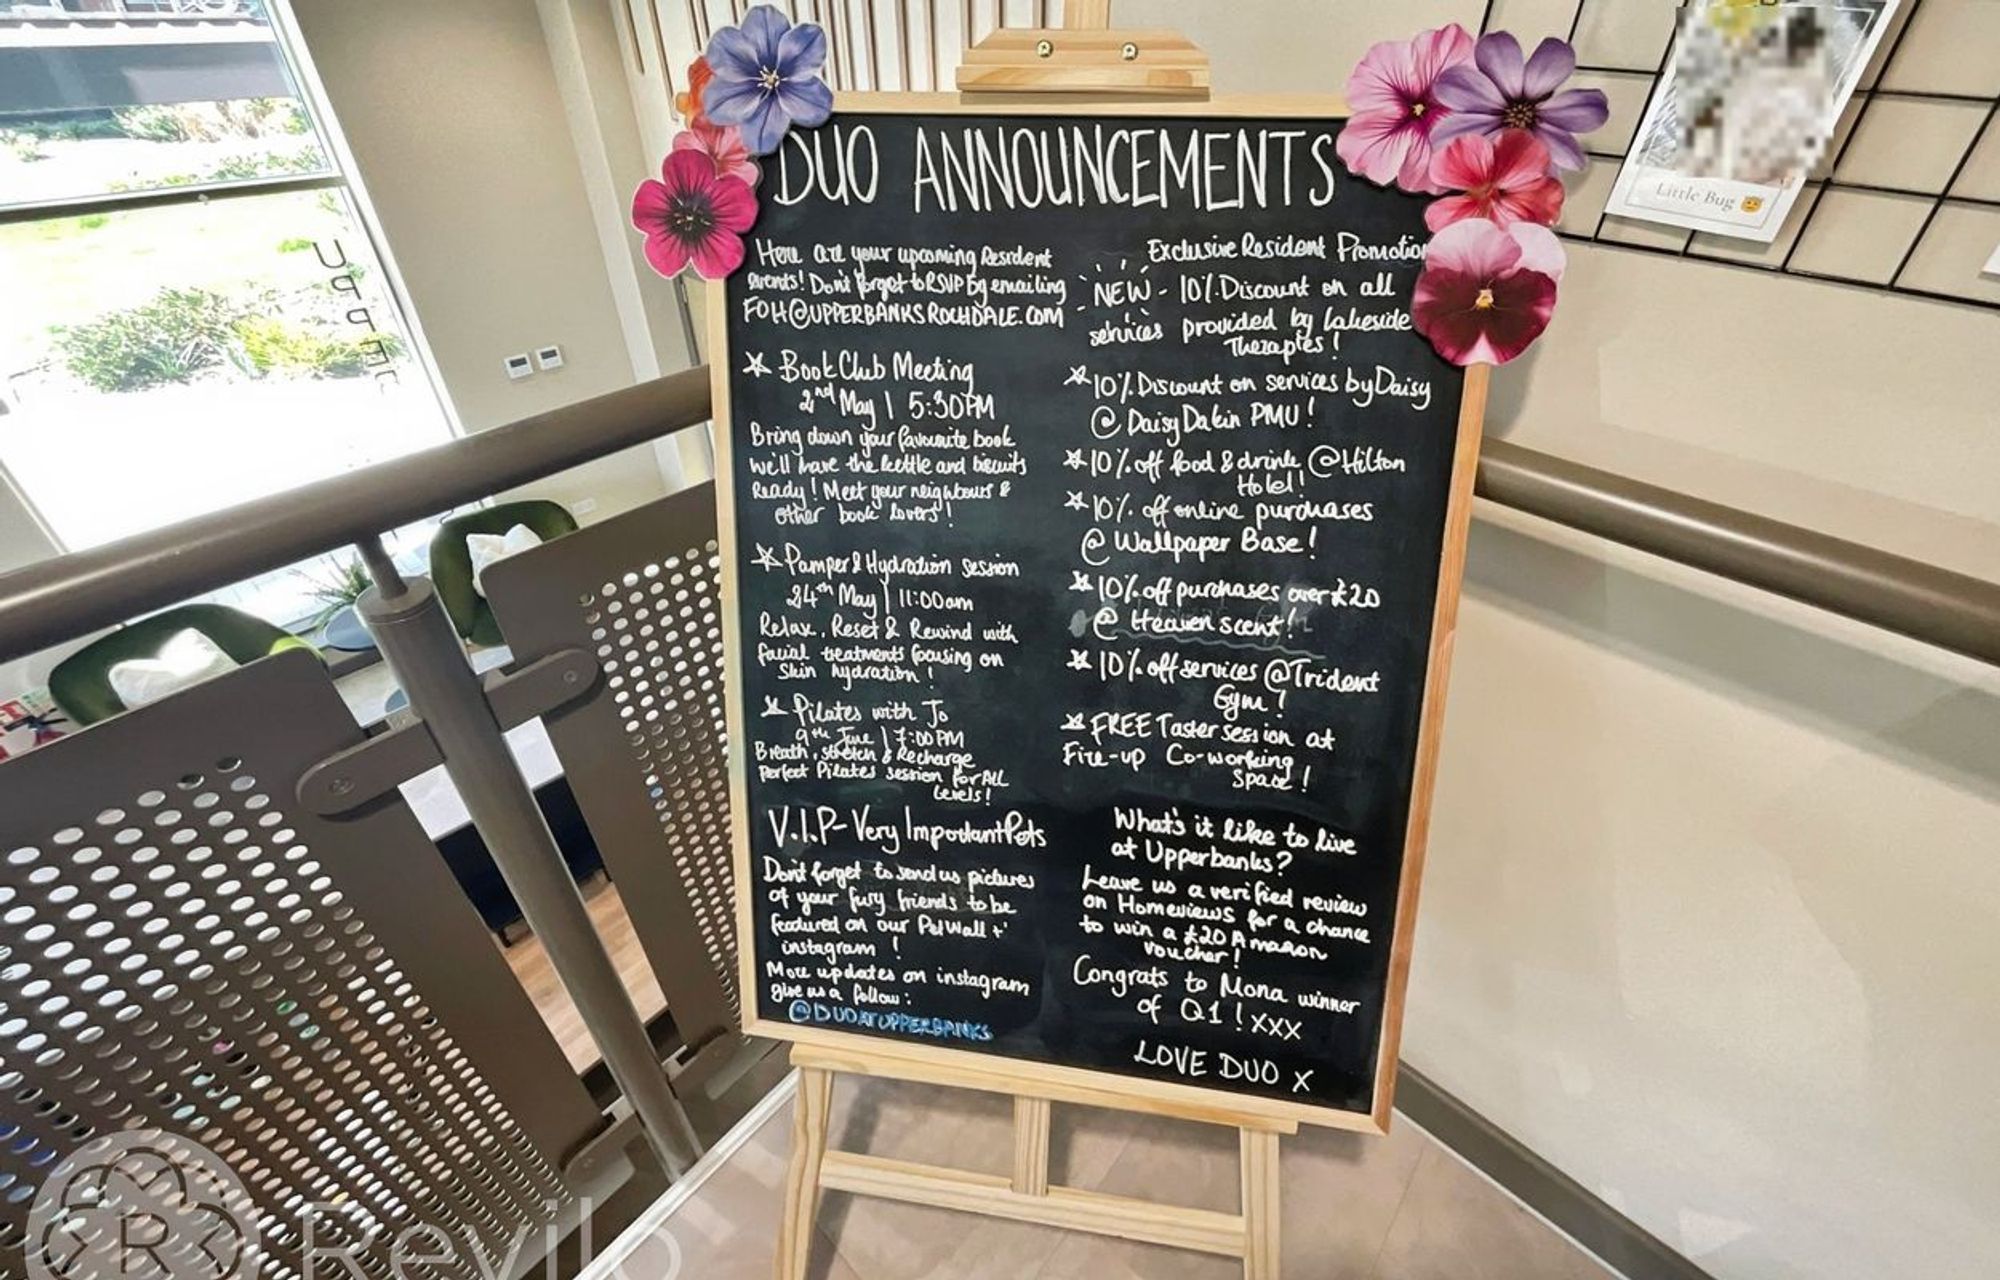 DUO ANNOUNCEMENTS
Here are your upcoming Resident
events! Don't forget to RSVP by emailing
FOH@UPPERBANKSROCHDALE.COM
Book Club Meeting
2nd May | 5:30PM
Bring down your favourite book
we'll have the kettle and biscuits
Ready! Meet your neighbours &
other book lovers!
Pamper & Hydration Session
24th May | 11:00am
Relax, Reset & Rewind with
facial treatments focusing on
Skin hydration!
Pilates with Jo
9th June | 7:00PM
Breath, stretch & Recharge
Perfect Pilates session for ALL
Levels!
V.I.P - Very Important Pets
Don't forget to send us pictures
of your fury friends to be
featured on our Pet Wall +
instagram!
More updates on instagram
give us a follow:
@DUOATUPPERBANKS
Exclusive Resident Promotion
NEW - 10% Discount on all
services provided by Lakeside
Therapies!
10% Discount on services by Daisy
@ Daisy Dakin PMU!
10% off food & drink @ Hilton
Hotel!
10% off online purchases
@ Wallpaper Base!
10% off purchases over £20
@ Heaven scent!
10% off services @ Trident
Gym!
FREE Taster session at
Fire-up Co-working
Space!
What's it like to live
at Upperbanks?
Leave us a verified review
on Homeviews for a chance
to win a £20 Amazon
voucher!
Congrats to Mona winner
of Q1! xxx
LOVE DUO X
Little Bug 😇
UPPER
R Revilo